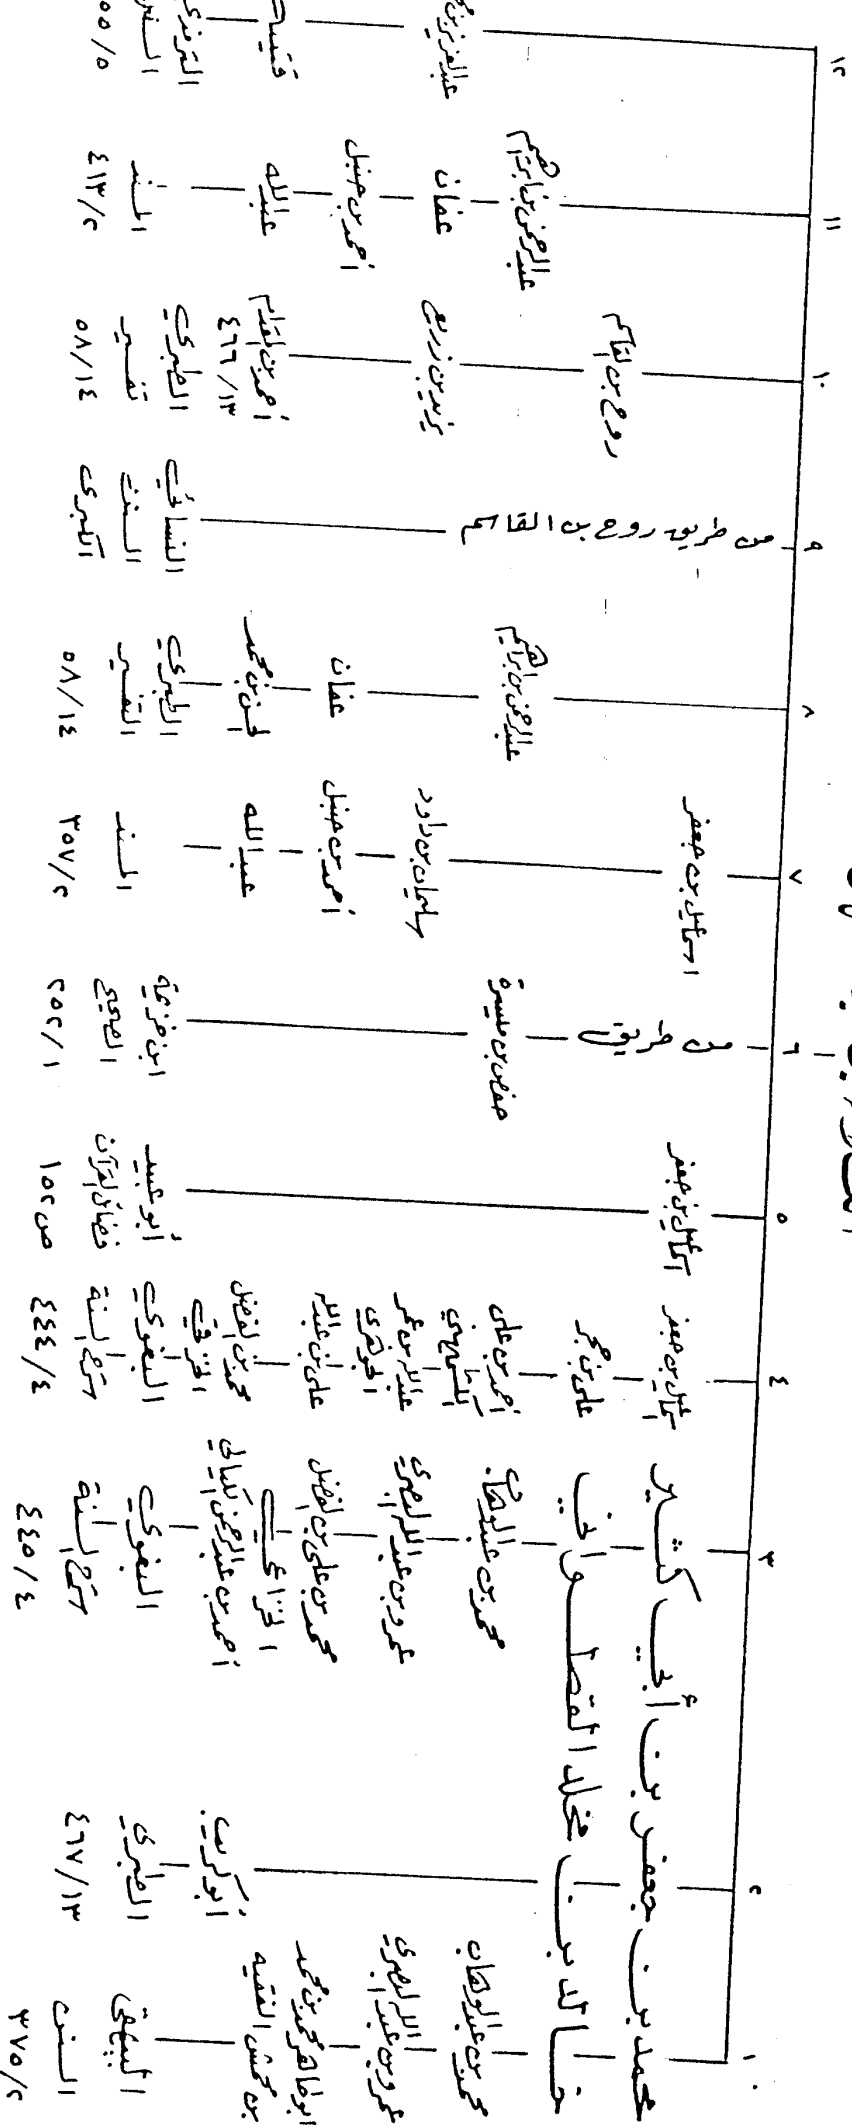 ١
محمد بن جعفر بن أبي كثير
خالد بن مخلد القطواني
محمد بن عبد الوهاب
عمرو بن عبد الله البصري
أبو طاهر محمد بن محمد
بن محمش الفقيه
البيهقي
السنن
٣٧٥/٢
٢
أبو كريب
الطبري
٤٦٧/١٣
٣
محمد بن عبد الوهاب
عمرو بن عبد الله البصري
محمد بن علي بن الفضل
الخزاعي
أحمد بن عبد الرحمن الكيالي
البغوي
شرح السنة
٤٤٥/٤
٤
إسماعيل بن جعفر
علي بن حجر
أحمد بن علي
الكشميهني
عبد الله بن عمر
الجوهري
علي بن عبد الله
محمد بن الفضل
الخرقي
البغوي
شرح السنة
٤٤٤/٤
٥
إسماعيل بن جعفر
أبو عبيد
فضائل القرآن
ص ١٥٢
٦
من طريق
حفص بن ميسرة
ابن خزيمة
الصحيح
٢٥٢/١
٧
اسماعيل بن جعفر
سليمان بن داود
أحمد بن حنبل
عبد الله
المسند
٣٥٧/٢
٨
عبد الرحمن بن إبراهيم
عفان
الحسن بن محمد
الطبري
التفسير
٥٨/١٤
٩
من طريق روح بن القاسم
النسائي
السنن
الكبرى
١٠
روح بن القاسم
يزيد بن زريع
أحمد بن المقدام
٤٦٦/١٣
الطبري
تفسير
٥٨/١٤
١١
عبد الرحمن بن إبراهيم
عفان
أحمد بن حنبل
عبد الله
المسند
٤١٣/٢
١٢
عبد العزيز بن
قتيبة
الترمذي
السنن